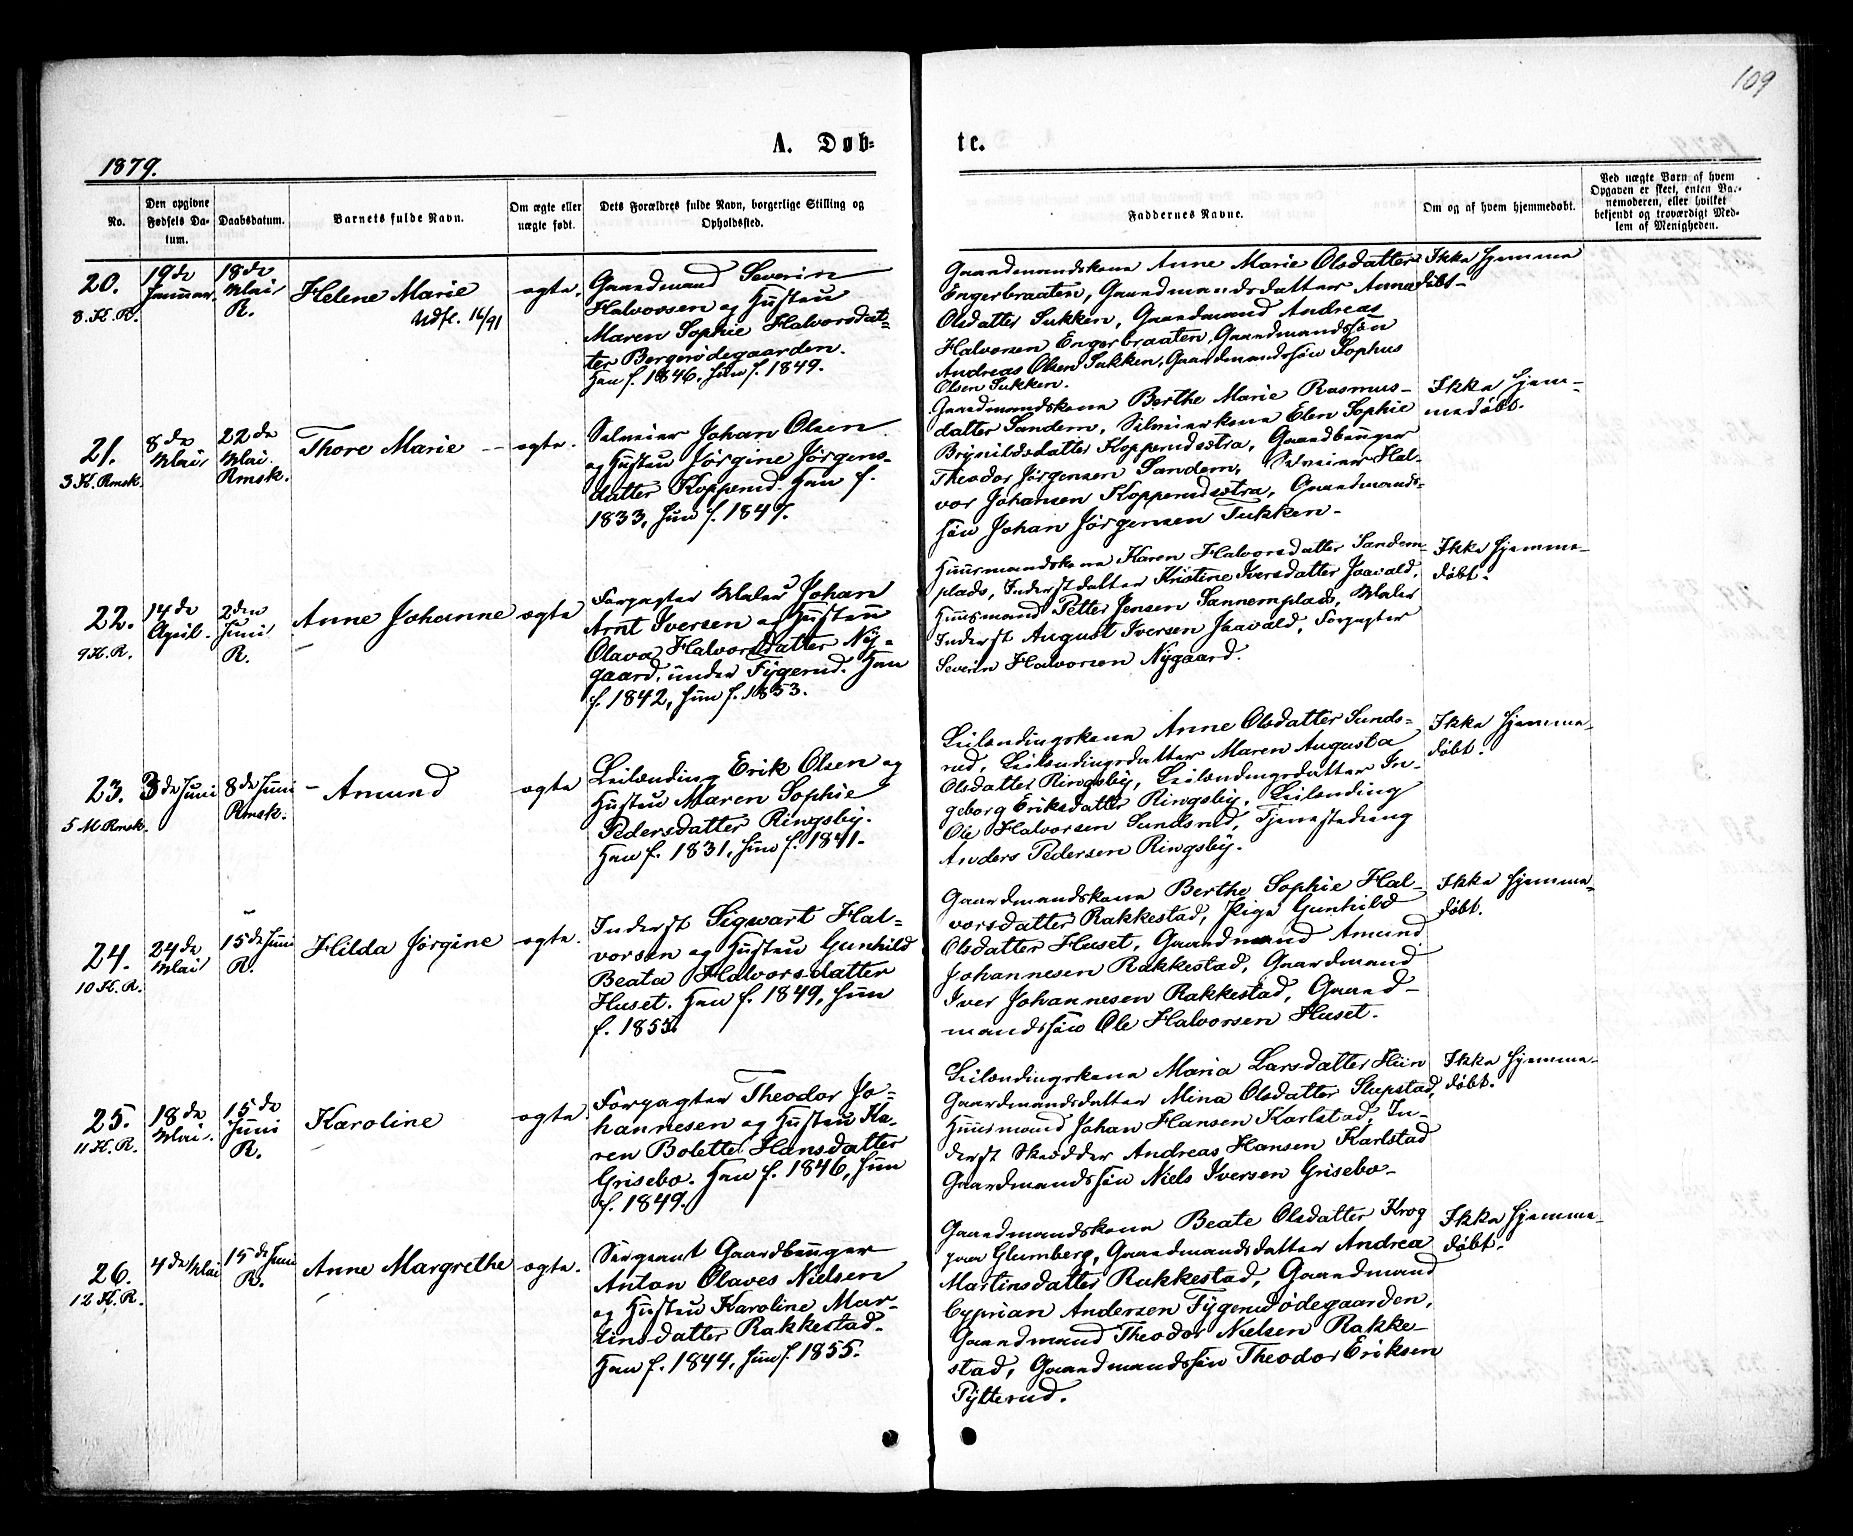 109
A. Døb-
te.
1879.
No.
Den opgivne
Fødsels Da-
tum.
Daabsdatum.
Barnets fulde Navn.
Om ægte eller
uægte født.
Dets Forældres fulde Navn, borgerlige Stilling og
Opholdssted.
Faddernes Navne.
Om og af hvem hjemmedøbt.
Ved uægte Børn af hvem
Opgaven er skert, enten Bar-
nemoderen, eller hvilket
bekjendt og troværdigt Med-
lem af Menigheden.
20.
8. K. R.
19de
Januar
18de
Mai
R.
Helene Marie
Udfl. 16/91
ægte.
Gaardmand Severin
Halvorsen og Hustru
Maren Sophie Halvorsdat-
ter Bergerødegaarden.
Han f. 1846, hun f. 1849.
Gaardmandskone Anne Marie Olsdatter
Engerbraaten, Gaardmandsdatter Anna
Olsdatter Sukken, Gaardmand Andreas
Halvorsen Engerbraaten, Gaardmandssøn
Andreas Olsen Sukken, Gaardmandssøn Sophus
Olsen Sukken.
Ikke hjemme
døbt-
21.
3 K. Rmsk.
8de
Mai
22de
Mai.
Rmsk.
Thore Marie
ægte.
Selveier Johan Olsen
og Hustru Jørgine Jørgens-
datter Kopperud. Han f.
1833, hun f. 1847.
Gaardmandskone Berthe Marie Rasmus-
datter Sandem, Selveierkone Elen Sophie
Brynildsdatter Kopperudsætra, Gaardbruger
Theodor Jørgensen Sandem, Selveier Hal-
vor Johansen Kopperudsætra, Gaardmands-
søn Johan Jørgensen Tukken-
Ikke hjem-
medøbt.
22.
9 K. R.
14de
April.
2den
Juni
R.
Anne Johanne
ægte
Forpagter Maler Johan
Arnt Iversen og Hustru
Olava Halvorsdatter Ny-
gaard, under Fygerud. Han
f. 1842, hun f. 1853.
Huusmandskone Karen Halvorsdatter Sandem-
plads, Inderstdatter Kristine Iversdatter Jaavald,
Huusmand Petter Jensen Sannemplads, Maler
Inderst August Iversen Jaavald, Forpagter
Severin Halvorsen Nygaard.
Ikke hjemme-
døbt.
23.
5 M Rmsk.
3de Juni
8de Juni
Rmsk.
Amund
ægte
Leilænding Erik Olsen og
Hustru Maren Sophie
Pedersdatter Ringsby.
Han f. 1831, hun f. 1841.
Leilændingskone Anne Olsdatter Sunds-
rud, Leilændingsdatter Maren Augusta
Olsdatter Ringsby, Leilændingsdatter In-
geborg Eriksdatter Ringsby, Leilænding
Ole Halvorsen Sundsrud, Tjenestedreng
Anders Pedersen Ringsby.
Ikke hjemme-
døbt.
24.
10 K. R.
24de
Mai
15de Juni
R.
Hilda Jørgine
ægte.
Inderst Sigwart Hal-
vorsen og Hustru Gunhild
Beata Halvorsdatter
Huset. Han f. 1849, hun
f. 1855.
Gaardmandskone Berthe Sophie Hal-
vorsdatter Rakkestad, Pige Gunhild
Olsdatter Huset, Gaardmand Amund
Johannesen Rakkestad, Gaardmand
Iver Johannesen Rakkestad, Gaard-
mandssøn Ole Halvorsen Huset.
Ikke hjemme-
døbt.
25.
11 K. R.
18de
Mai.
15de
Juni
R.
Karoline
ægte
Forpagter Theodor Jo-
hannesen og Hustru Ka-
ren Bolette Hansdatter
Grisebo. Han f. 1846, hun
f. 1849.
Leilændingskone Maria Larsdatter Hiin
Gaardmandsdatter Mina Olsdatter Slupstad,
Huusmand Johan Hansen Karlstad, In-
derst Skrædder Andreas Hansen Karlstad
Gaardmandssøn Niels Iversen Grisebo-
Ikke hjemme-
døbt.
26.
12 K. R.
4de Mai
15de Juni
R.
Anne Margrethe
ægte.
Sergeant Gaardbruger
Anton Olaves Nielsen
og Hustru Karoline Mar-
tinsdatter Rakkestad.
Han f. 1844, hun f. 1855.
Gaardmandskone Beate Olsdatter Krog
paa Glumberg, Gaardmandsdatter Andrea
Martinsdatter Rakkestad, Gaardmand
Cyprian Andersen Fygerudødegaarden,
Gaardmand Theodor Nielsen Rakke-
stad, Gaardmandssøn Theodor Eriksen
Pytterud.
Ikke hjemme-
døbt.